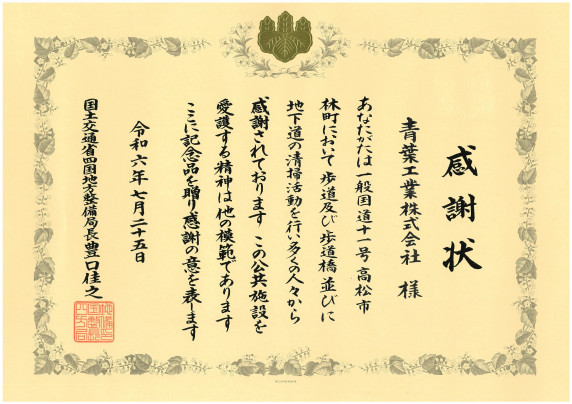 感謝状
青葉工業株式会社 様
あなたがたは一般国道十一号高松市
林町において歩道及び歩道橋並びに
地下道の清掃活動を行い多くの人々から
感謝されております この公共施設を
愛護する精神は他の模範であります
ここに記念品を贈り感謝の意を表します
令和六年七月二十五日
国土交通省四国地方整備局長 豊口佳之